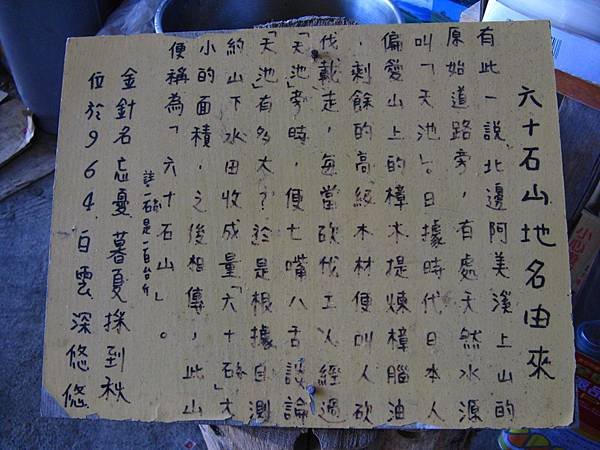 六十石山地名由來
有此一說北邊阿美溪上山的
原始道路旁，有處天然水源
叫「天池」。日據時代日本人
偏愛山上的樟木提煉樟腦油
，剩餘的高級木材便叫人砍
伐載走，每當砍伐工人經過
「天池」旁時，便七嘴八舌談論
「天池」有多大？於是根據目測
約山下水田收成量「六十」大
小的面積，之後相傳，此山
便稱為「六十石山」。
註：一是一百台斤
金針名忘憂暮夏採到秋
位於964白雲深悠悠